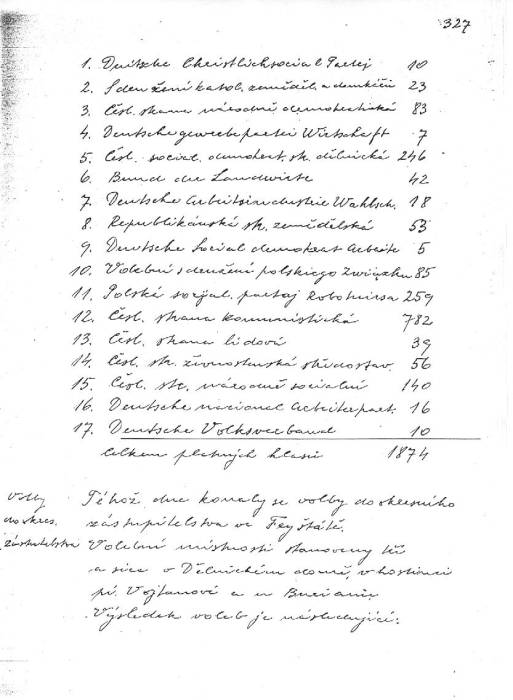 327
1. Deutsche Christlichsocial Partej 10
2. Sdružení katol. zeměděl. a domkářů 23
3. Čsl. strana národně demokratická 83
4. Deutsche gewerbepartei Wirtschaft 7
5. Čsl. social. demokrat. str. dělnická 246
6. Bund der Landwirte 42
7. Deutsche Arbeits Wahlsch. 18
8. Republikánská str. zemědělská 53
9. Deutsche Social demokrat Arbeite 5
10. Volební sdružení polskiego Związku 85
11. Polská socjal. partaj Robotnicza 259
12. Čsl. strana komunistická 782
13. Čsl. strana lidová 39
14. Čsl. str. živnostenská středostav. 56
15. Čsl. str. národně socialní 140
16. Deutsche nacional Arbeiterpart. 16
17. Deutsche Volksverband 10
Celkem platných hlasů 1874
Volby
do okres.
zástupitelstva
Téhož dne konaly se volby do okresního
zástupitelstva ve Fryštátě.
Volební místnosti stanoveny tři
a sice v Dělnickém domě, v hostinci
pí. Vojtanové a u Buriana
Výsledek voleb je následující: